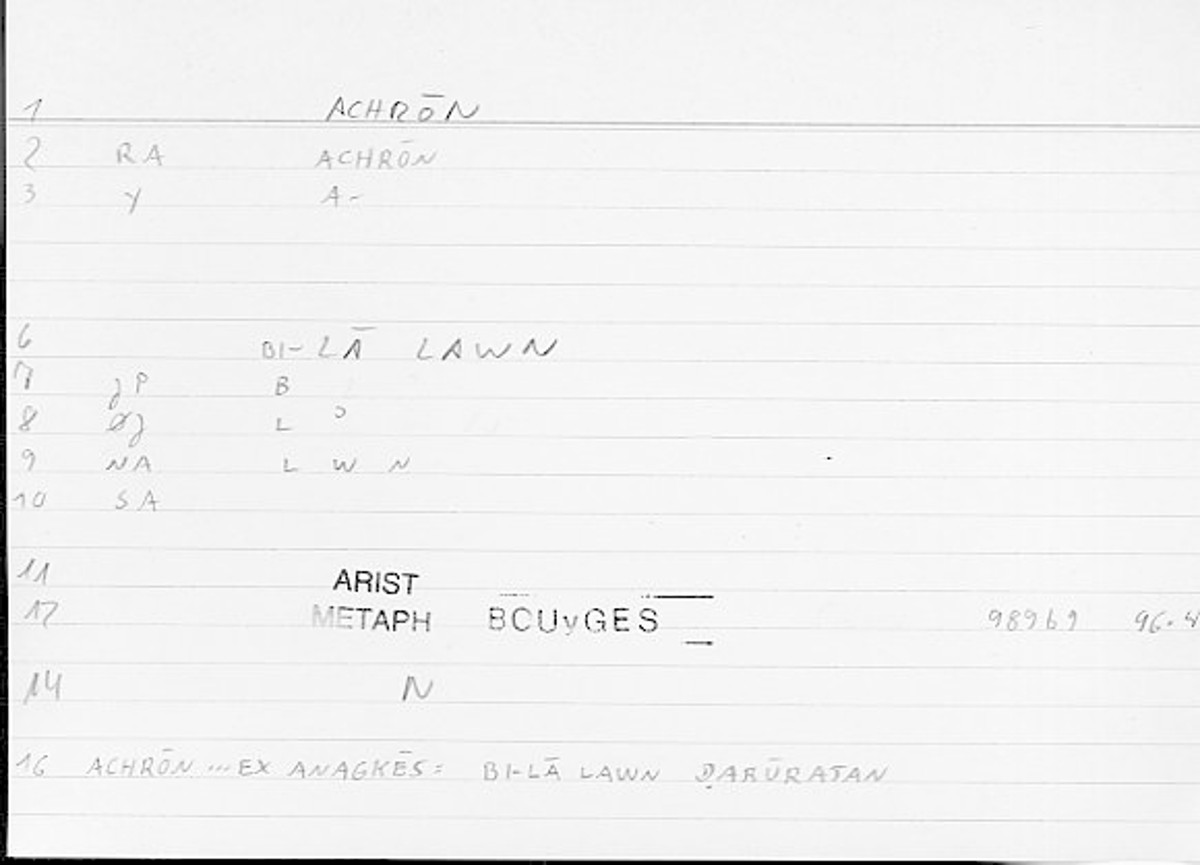 1 ACHRŌN
2 RA ACHRŌN
3 y A-
6 BI-LĀ LAWN
7 jP B
8 Øj L ʾ
9 NA L W N
10 SA
11 ARIST
12 METAPH BOUyGES 98969 96.4
14 N
16 ACHRŌN ... EX ANAGKĒS: BI-LĀ LAWN ḌARŪRATAN